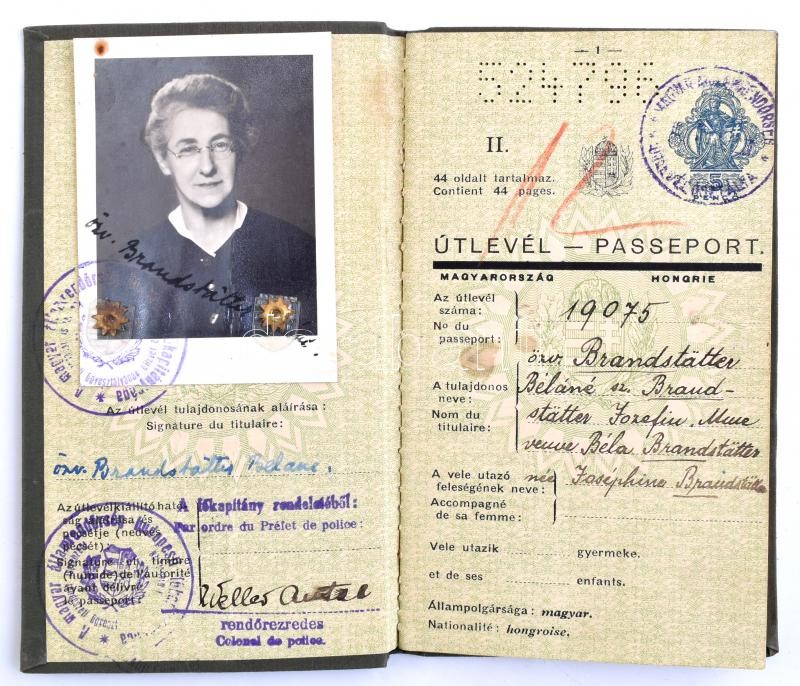 özv. Brandstätter
Az útlevél tulajdonosának aláírása :
Signature du titulaire :
özv. Brandstätter Béláné.
Az útlevélkiállító ható-
A főkapitány rendeletéből:
Par ordre du Préfet de police:
pecsétje (nedves
pecsét):
Signature et timbre
(humide) de l'autorité
ayant délivré
le passeport:
rendőrezredes
Colonel de police.
— 1 —
524796
II.
12
44 oldalt tartalmaz.
Contient 44 pages.
ÚTLEVÉL — PASSEPORT.
MAGYARORSZÁG HONGRIE
Az útlevél
száma :
No du
passeport :
19075
A tulajdonos
neve:
Nom du
titulaire:
özv. Brandstätter
Béláné sz. Brand-
stätter Jozefin, Mme
veuve Béla Brandstätter
née Josephine Brandstätter
A vele utazó
feleségének neve :
Accompagné
de sa femme :
Vele utazik gyermeke.
et de ses enfants.
Állampolgársága : magyar.
Nationalité : hongroise.